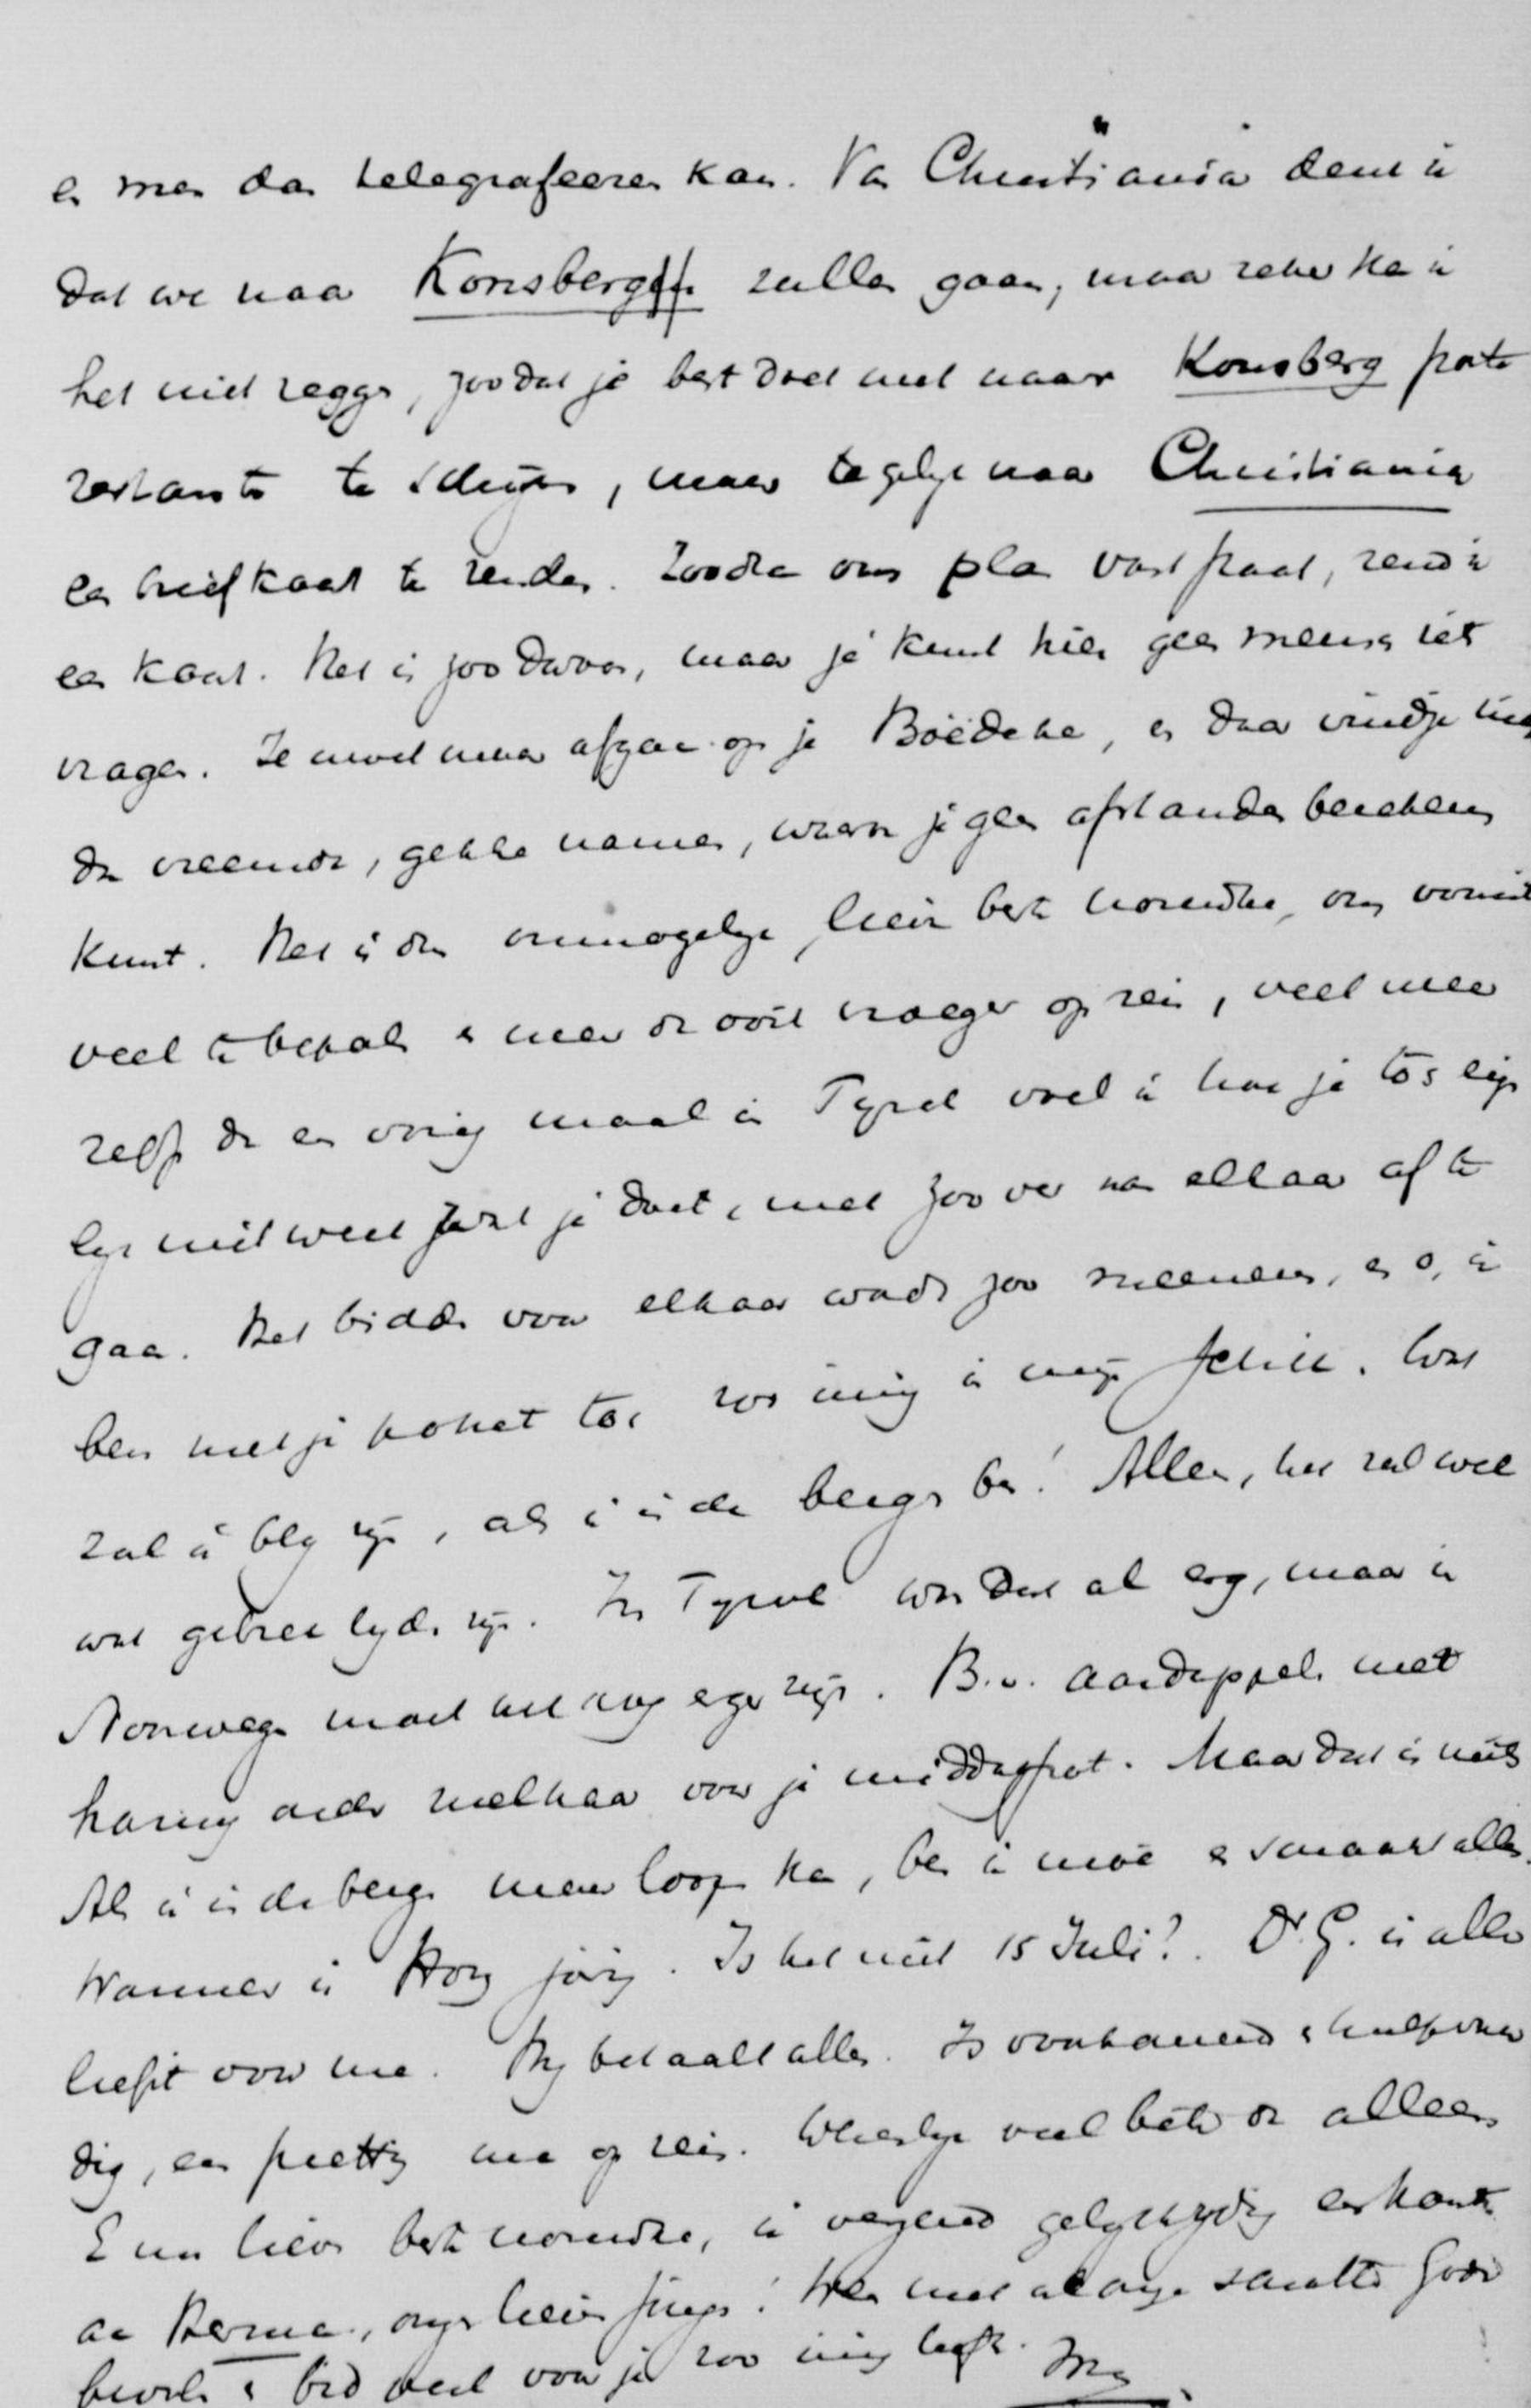 en men dan telegrafeeren kan. Van Christiania denk ik
dat we naar Konsberg zullen gaan, maar zeker kan ik
het niet zeggen, zoodat je best doet met naar Konsberg poste
restante te schrijven, maar tegelijk naar Christiania
een briefkaart te zenden. Zoodra ons plan vast staat, zend ik
een kaart. Het is zoo dwaas, maar je kunt hier geen mensch iets
vragen. Je moet maar afgaan op je Baedeker, en daar vind je
die vreemde, gekke namen, waarvan je geen afstanden berekenen
kunt. Het is dus onmogelijk, lieve beste moedertje, om vooruit
veel te bepalen en meer dan ooit vroeger op reis, veel meer
zelfs dan een vorig maal in Tyrol voel ik hoe je los
niet weet wat je doet, met zoo ver van elkaar af te
gaan. Het bidden voor elkaar wordt zoo en o, ik
ben met je portret toch zoo innig in mijn schik. Wat
zal ik blij zijn, als ik in de bergen ben! Alleen, het zal wel
wat gebrek lijden zijn. In Tyrol was dat al erg, maar in
Noorwegen moet het nog erger zijn. B.v. aardappels met
haring onder melkaar voor je middagpot. Maar dat is niets
Als ik in de bergen maar loopen kan, ben ik moe en smaakt alles.
Wanneer is Hong jarig. Is het niet 15 Juli? Dr. G. is aller
liefst voor me. Hij betaalt alles. Is voorkomend en hulpvaar
dig, en prettig mee op reis. Werkelijk veel beter dan alleen
E nu lieve beste moedertje, ik verzend gelijktijdig een kaart
aan Herma, onze lieve jongen! Wees met al onze schatten Gode
bevolen en bid veel voor je zoo innig liefh.